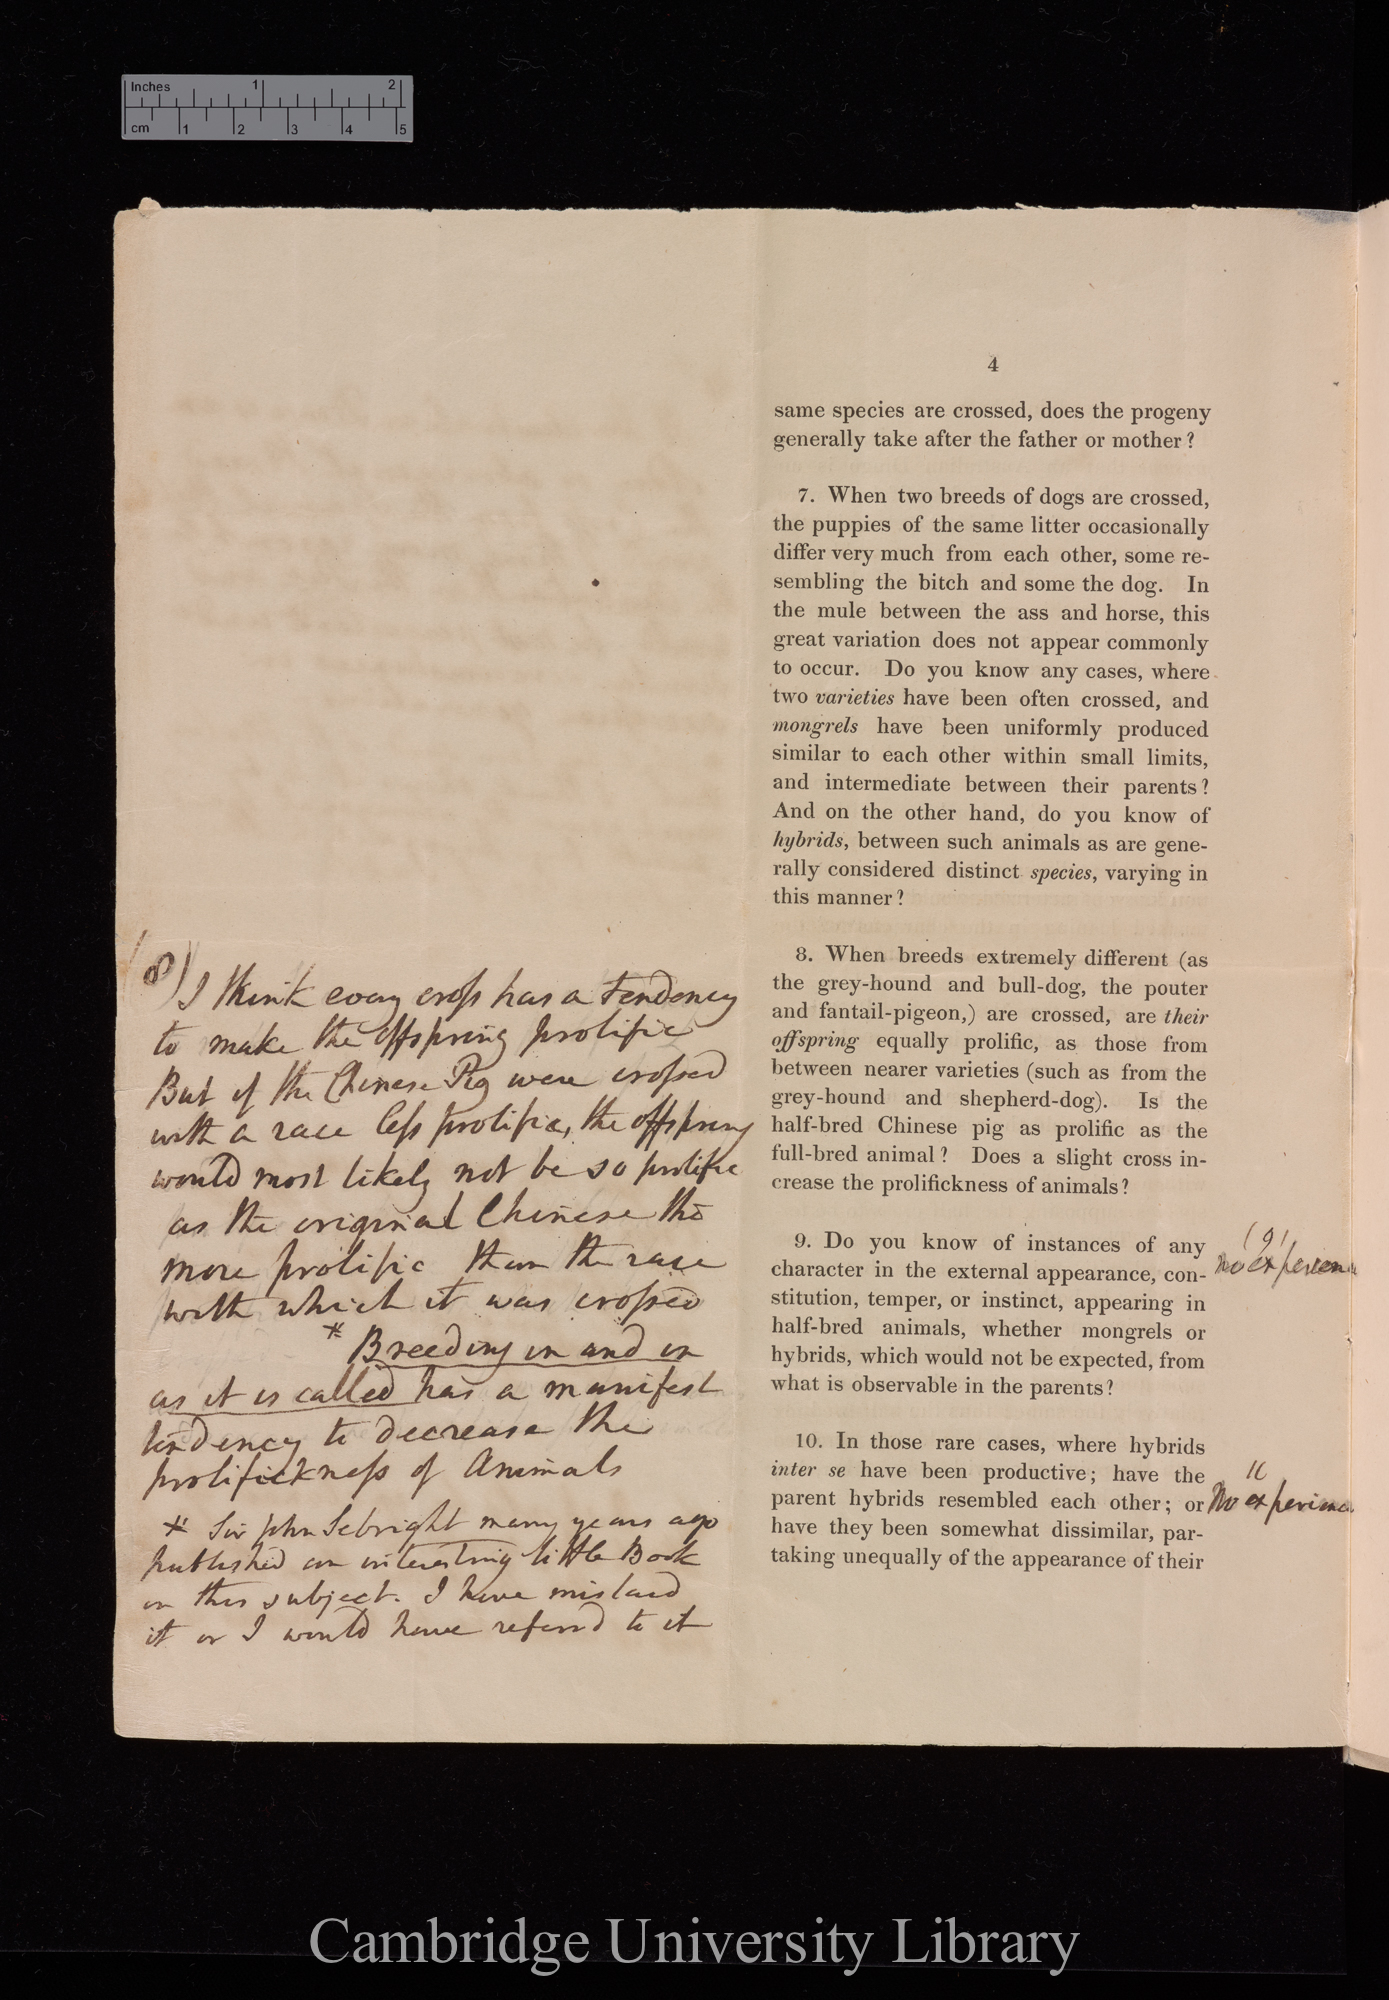 Inches 1 2
cm 1 2 3 4 5
4
same species are crossed, does the progeny
generally take after the father or mother?
7. When two breeds of dogs are crossed,
the puppies of the same litter occasionally
differ very much from each other, some re-
sembling the bitch and some the dog. In
the mule between the ass and horse, this
great variation does not appear commonly
to occur. Do you know any cases, where
two varieties have been often crossed, and
mongrels have been uniformly produced
similar to each other within small limits,
and intermediate between their parents?
And on the other hand, do you know of
hybrids, between such animals as are gene-
rally considered distinct species, varying in
this manner?
8. When breeds extremely different (as
the grey-hound and bull-dog, the pouter
and fantail-pigeon,) are crossed, are their
offspring equally prolific, as those from
between nearer varieties (such as from the
grey-hound and shepherd-dog). Is the
half-bred Chinese pig as prolific as the
full-bred animal? Does a slight cross in-
crease the prolifickness of animals?
9. Do you know of instances of any
character in the external appearance, con-
stitution, temper, or instinct, appearing in
half-bred animals, whether mongrels or
hybrids, which would not be expected, from
what is observable in the parents?
10. In those rare cases, where hybrids
inter se have been productive; have the
parent hybrids resembled each other; or
have they been somewhat dissimilar, par-
taking unequally of the appearance of their
(8)
I think every cross has a tendency
to make the offspring prolific
But if the Chinese Pig were crossed
with a race less prolific, the offspring
would most likely not be so prolific
as the original Chinese tho
more prolific than the race
with which it was crossed
* Breeding in and in
as it is called has a manifest
tendency to decrease the
prolifickness of Animals
* Sir John Sebright many years ago
published an interesting little Book
on this subject. I have mislaid
it or I would have referrd to it
(9)
no experien
No experience
Cambridge University Library